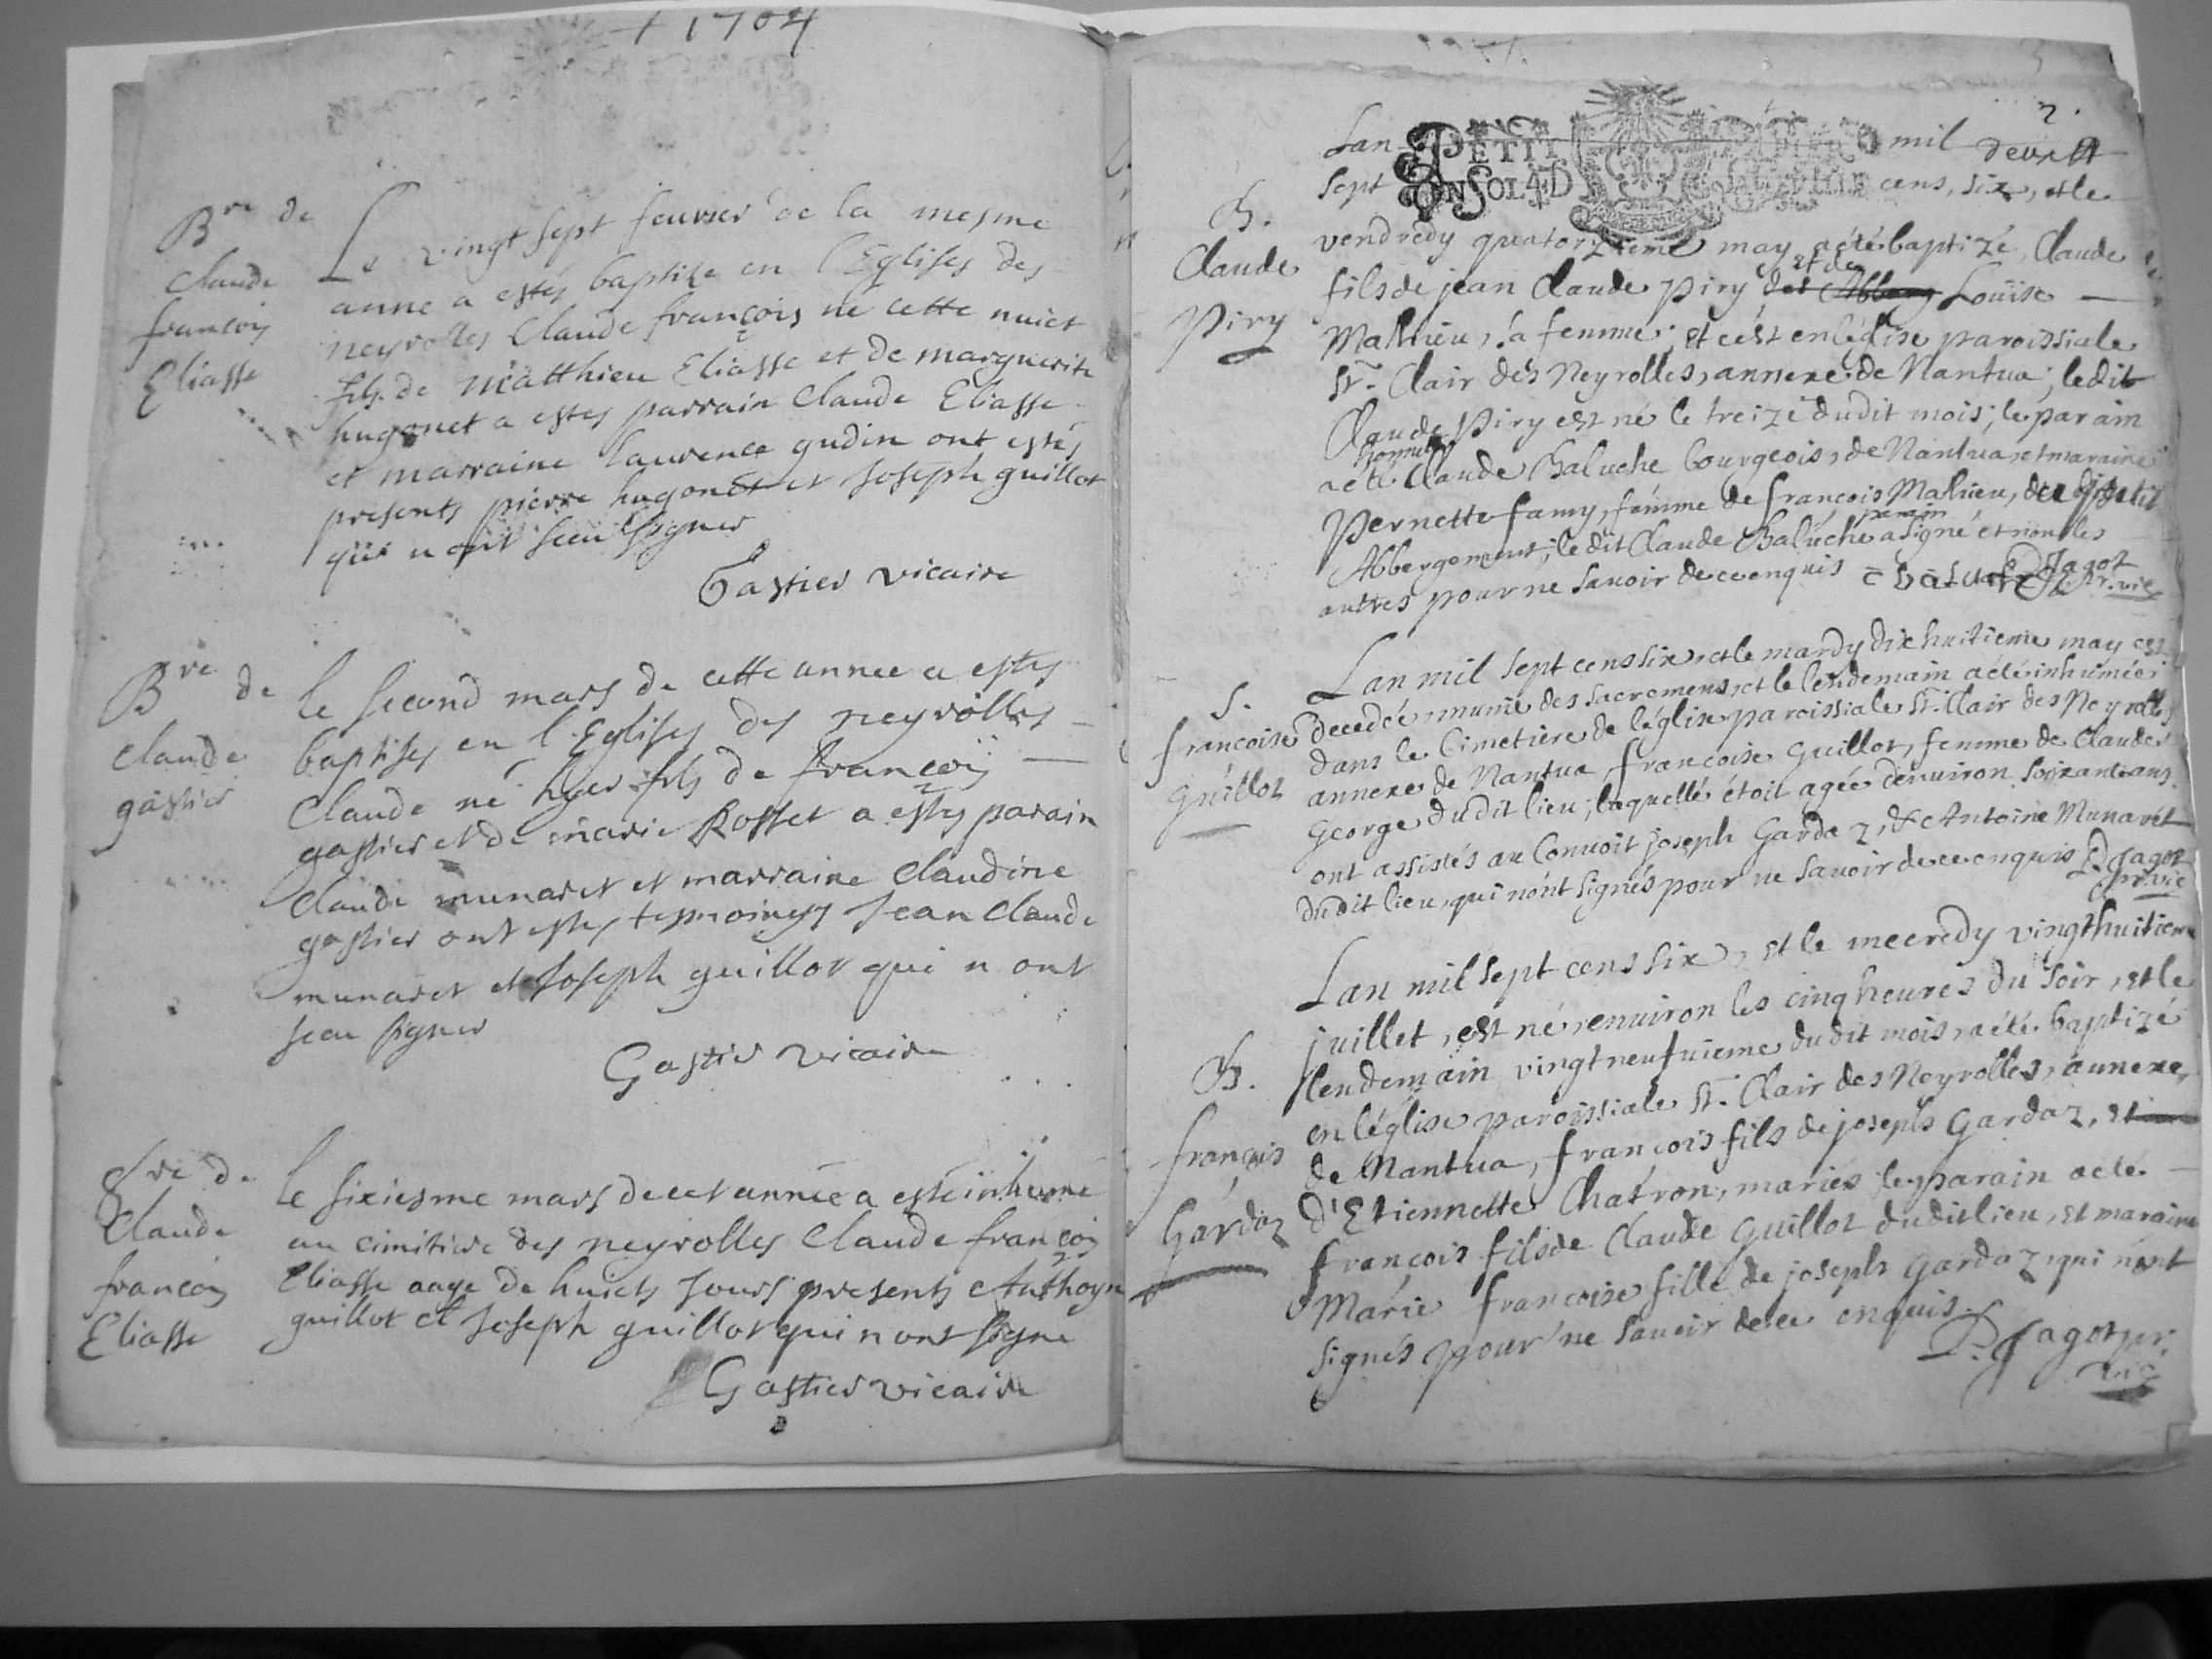 + 1704
Bre de
Claude
françois
Eliasse
Le vingt sept feuvrier de la mesme
anne a estés baptise en l'Eglises des
neyrolles Claude françois né cette nuict
fils de Matthieu Eliasse et de marguerite
hugonet a estes parrain Claude Eliasse
et marraine laurence gudin ont estés
presents pierre hugonet et Joseph guillot
qui n ont sceu signer
Gastier vicaire
Bre de
Claude
gastier
le second mars de cette annee a estes
baptises en l'Eglises des neyrolles
Claude né hyer fils de françois
gastier et de marie Rosset a estes parain
Claude munaret et marraine Claudine
gastier ont estes tesmoings Jean Claude
munaret et Joseph guillot qui n ont
sceu signer
Gastier vicaire
Sre de
Claude
françois
Eliasse
le sixiesme mars de cet année a esté inhumé
au cimitiere des neyrolles Claude françois
Eliasse aage de huicts Jours presents Anthoyne
guillot et Joseph guillot qui n ont signe
Gastier vicaire
2.
Lan PETIT PAPIER mil
sept UN SOL 4 D cens, six, et le
B.
Claude
Piry
vendredy quatorzieme may a été baptizé, Claude
fils de jean Claude Piry et de Louïse
Mathieu, sa femme; et c'est en léglise paroissiale
St. Clair des Neyrolles, annexe de Nantua; ledit
Claude Piry est né le treize dudit mois; le parain
a été Claude Baluche bourgeois, de Nantua, et maraine
Pernette famy, femme de françois Mathieu, du petit
Abbergement; le dit Claude Baluche parain a signé et non les
autres pour ne savoir de ce enquis C baluche P. Jagot
pr. vic
S.
françoise
Guillot
Lan mil sept cens six, et le mardy dix huitieme may est
decedée, munie des sacremens, et le lendemain a été inhumée
dans le Cimetiere de léglise paroissiale St. Clair des Neyrolles
annexe de Nantua, françoise Guillot, femme de Claude
George dudit lieu; laquelle étoit agée denuiron soixante ans.
ont assistés au Conuoit joseph Gardaz, & Antoine Munarét
dudit lieu, qui nont signés pour ne savoir de ce enquis P. Jagot
pr. vic
B.
françois
Gardaz
Lan mil sept cens six, et le mecredy vingt huitieme
juillet, est né enuiron les cinq heures du soir, et le
lendemain vingt neufuieme dudit mois, a été baptizé
en léglise paroissiale St. Clair des Neyrolles, annexe
de Nantua, françois fils de joseph Gardaz, et
d'Etiennette Chatron, mariés le parain a été
françois fils de Claude Guillot dudit lieu, et maraine
Marie françoise fille de joseph Gardaz, qui nont
signés pour ne sauoir de ce enquis.
P. Jagot pr.
vic